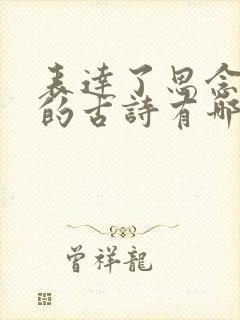 表達了思念
的古詩有哪
曾祥龍